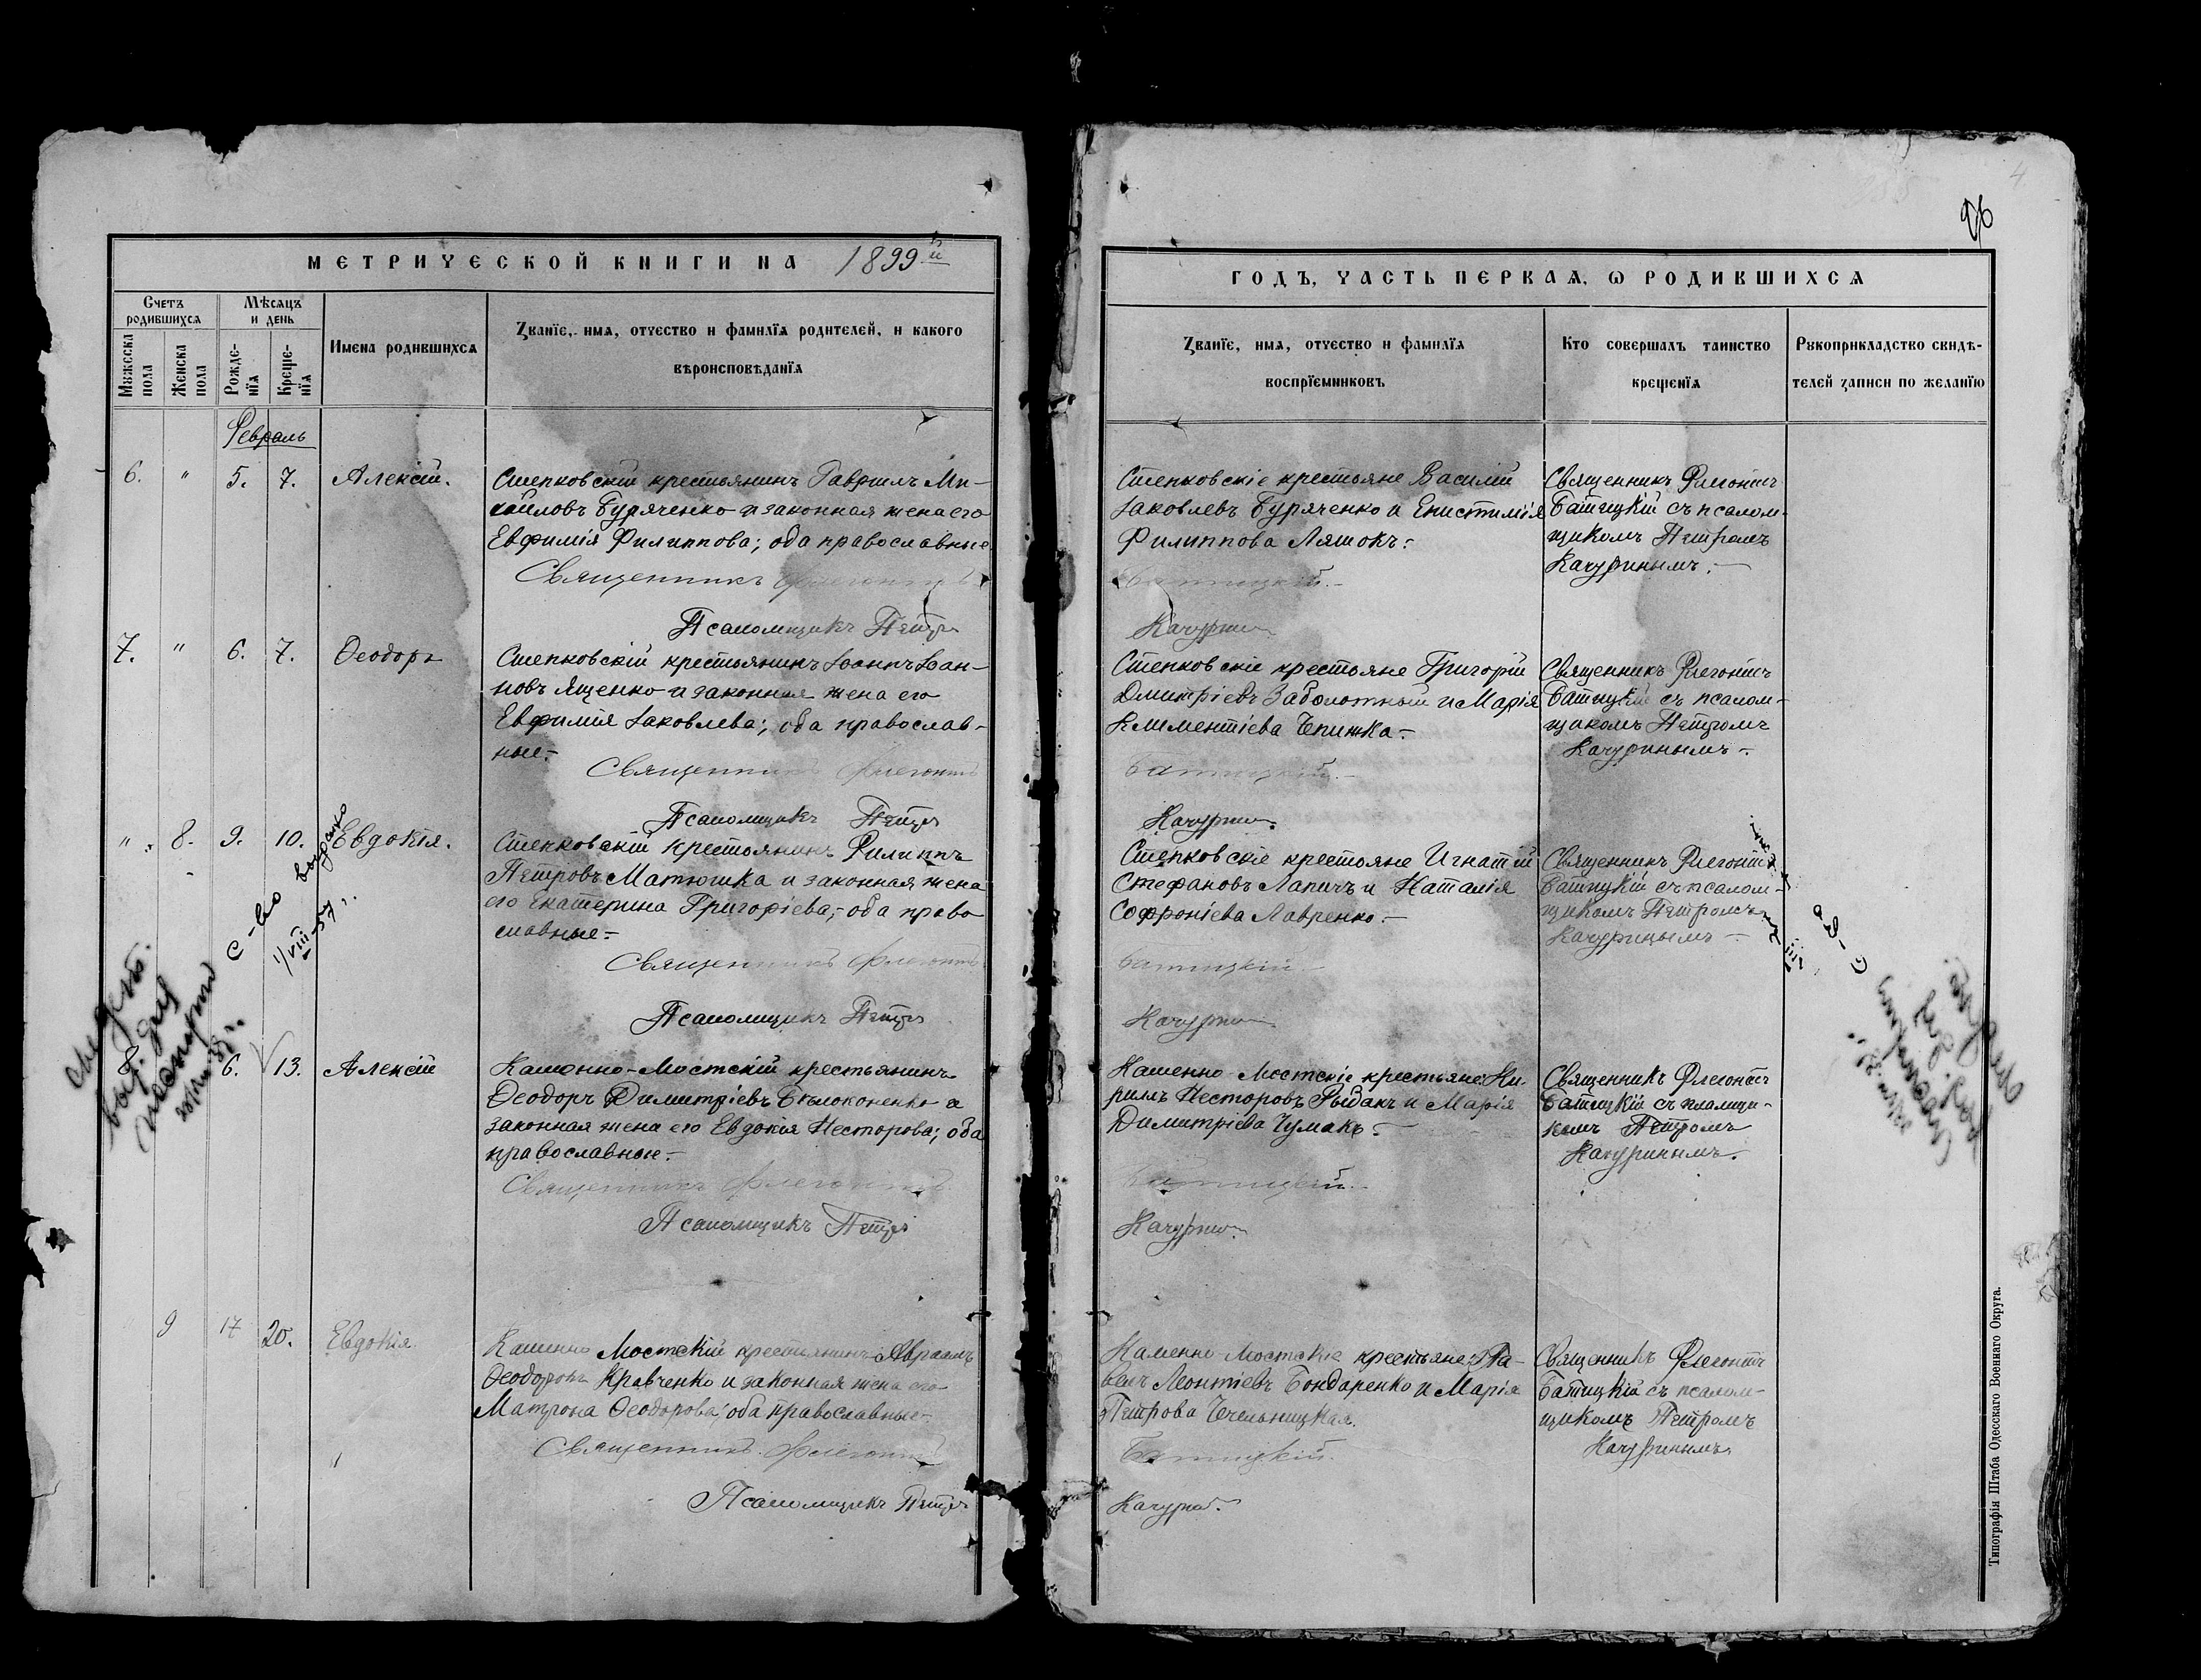 96
МЕТРИЧЕСКОЙ КНИГИ НА 1899й
ГОДЪ, ЧАСТЬ ПЕРВАЯ, Ѡ РОДИВШИХСЯ
Счетъ родившихся
Мѣсяцъ и день
Мужеска пола
Женска пола
Рожденїя
Крещенїя
Имена родившихся
Званїе, имя, отчество и фамилїя родителей, и какого
вѣроисповѣданїя
Званїе, имя, отчество и фамилїя
воспрїемниковъ
Кто совершалъ таинство
крещенїя
Рукоприкладство свидѣ-
телей записи по желанїю
Февраль
6. " 5. 7. Алексій.
Степковскій крестьянинъ Гавріилъ Ми-
хайловъ Буряченко и законная жена его
Евфимія Филиппова; оба православные
Священникъ Флегонтъ
Псаломщикъ Петръ
Степковскіе крестьяне Василій
Іаковлевъ Буряченко и Епистимія
Филиппова Ляшокъ:
Батицкій.-
Качурин
Священникъ Флегонтъ
Батицкій съ псалом-
щикомъ Петромъ
Качуринымъ.-
7. " 6. 7. Ѳеодоръ
Степковскій крестьянинъ Іоаннъ Іоан-
новъ Ященко и законная жена его
Евфимія Іаковлева; оба православ-
ные.-
Священникъ Флегонтъ
Псаломщикъ Петръ
Степковскіе крестьяне Григорій
Димитріевъ Заболотный и Марія
Климентіева Чпижка.-
Батицкій.-
Качурин.
Священникъ Флегонтъ
Батицкій съ псалом-
щикомъ Петромъ
Качуринымъ.-
" 8. 9. 10. Евдокія.
Степковскій крестьянинъ Филиппъ
Петровъ Матюшка и законная жена
его Екатерина Григоріева,- оба право
славные.-
Священникъ Флегонтъ
Псаломщикъ Петръ
Степковскіе крестьяне Игнатій
Стефановъ Лапичъ и Наталія
Софроніева Лавренко.-
Батицкій.-
Качурин
Священникъ Флегонтъ
Батицкій съ псалом-
щикомъ Петромъ
Качуринымъ.-
с-во выдано
1/VIII-57 г.
8. 6. 13. Алексій
Каменно-Мостскій крестьянинъ
Ѳеодоръ Димитріевъ Бѣлоконенко и
законная жена его Евдокія Несторова; оба
православные.-
Священникъ Флегонтъ
Псаломщикъ Петръ
Каменно-Мостскіе крестьяне: Ки-
риллъ Несторовъ Рыбакъ и Марія
Димитріева Чумакъ.-
Батицкій.-
Качурин.
Священникъ Флегонтъ
Батицкій съ псаломщи-
комъ Петромъ
Качуринымъ.
9 17 20. Евдокія
Каменно Мостскій крестьянинъ Авраамъ
Ѳеодоровъ Кравченко и законная жена его
Матрона Ѳеодорова; оба православные-
Священникъ Флегонтъ
Псаломщикъ Петръ
Каменно-Мостскіе крестьяне: Па-
велъ Леонтіевъ Бондаренко и Марія
Петрова Чечельницкая.
Батицкій.
Качурин.
Священникъ Флегонтъ
Батицкій съ псалом-
щикомъ Петромъ
Качуринымъ
Типографія Штаба Одесскаго Военнаго Округа.